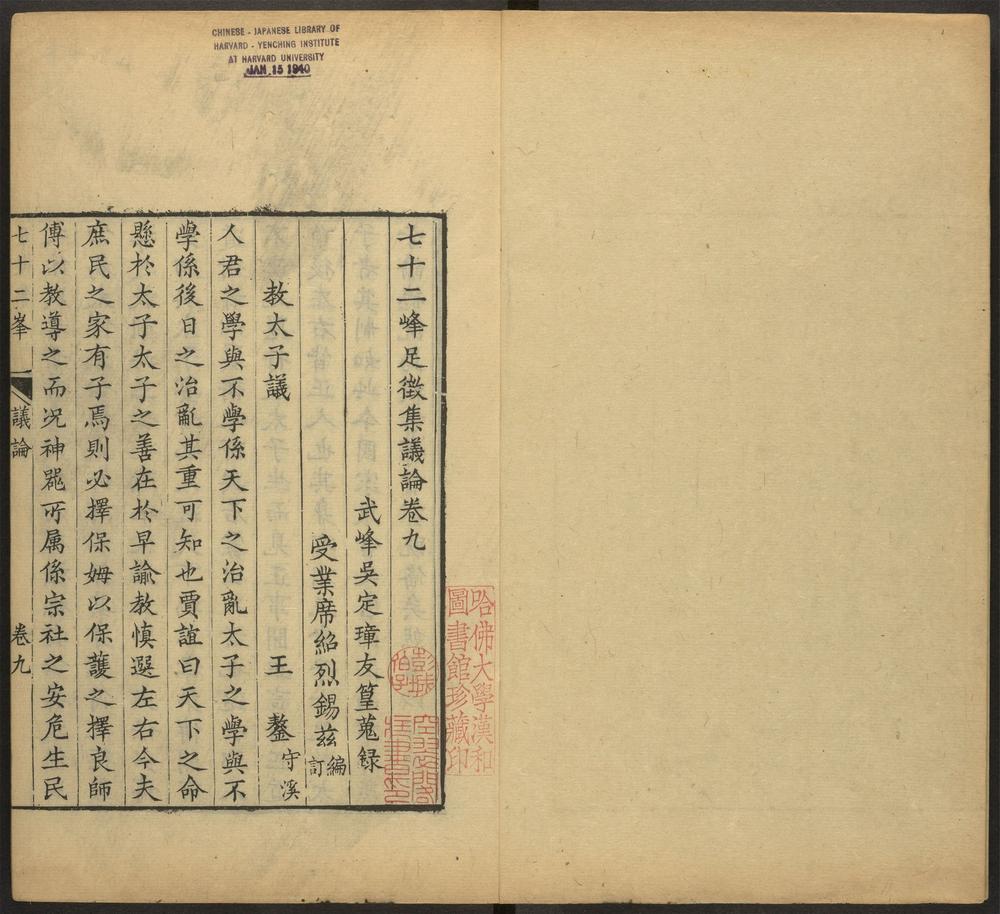 CHINESE - JAPANESE LIBRARY OF
HARVARD - YENCHING INSTITUTE
AT HARVARD UNIVERSITY
JAN 15 1940
哈佛大學漢和
圖書館珍藏印
七十二峰足徵集議論卷九
武峰吳定璋友篁蒐録
受業席紹烈錫兹編訂
教太子議 王鏊守溪
人君之學與不學係天下之治亂太子之學與不
學係後日之治亂其重可知也賈誼曰天下之命
懸於太子太子之善在於早諭教慎選左右今夫
庶民之家有子焉則必擇保姆以保護之擇良師
傅以教導之而况神噐所属係宗社之安危生民
七十二峯 議論 卷九